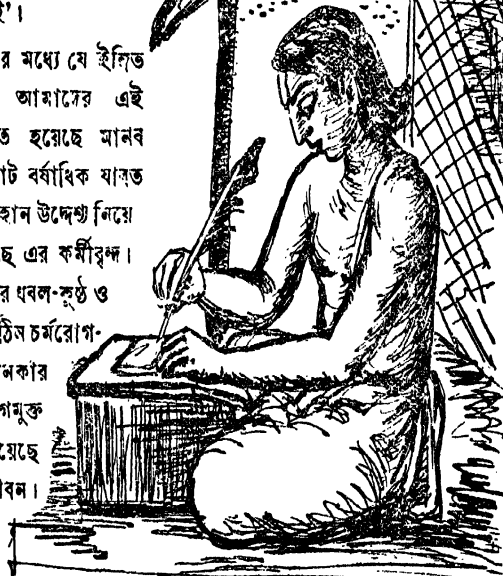 '।
র মধ্যে যে ইঙ্গিত
আমাদের এই
ত হয়েছে মানব
াট বর্ষাধিক যাবত
হান উদ্দেশ্য নিয়ে
ছে এর কর্মীবৃন্দ।
র ধবল-কুষ্ঠ ও
ঠিন চর্মরোগ-
নকার
গমুক্ত
য়েছে
ীবন।